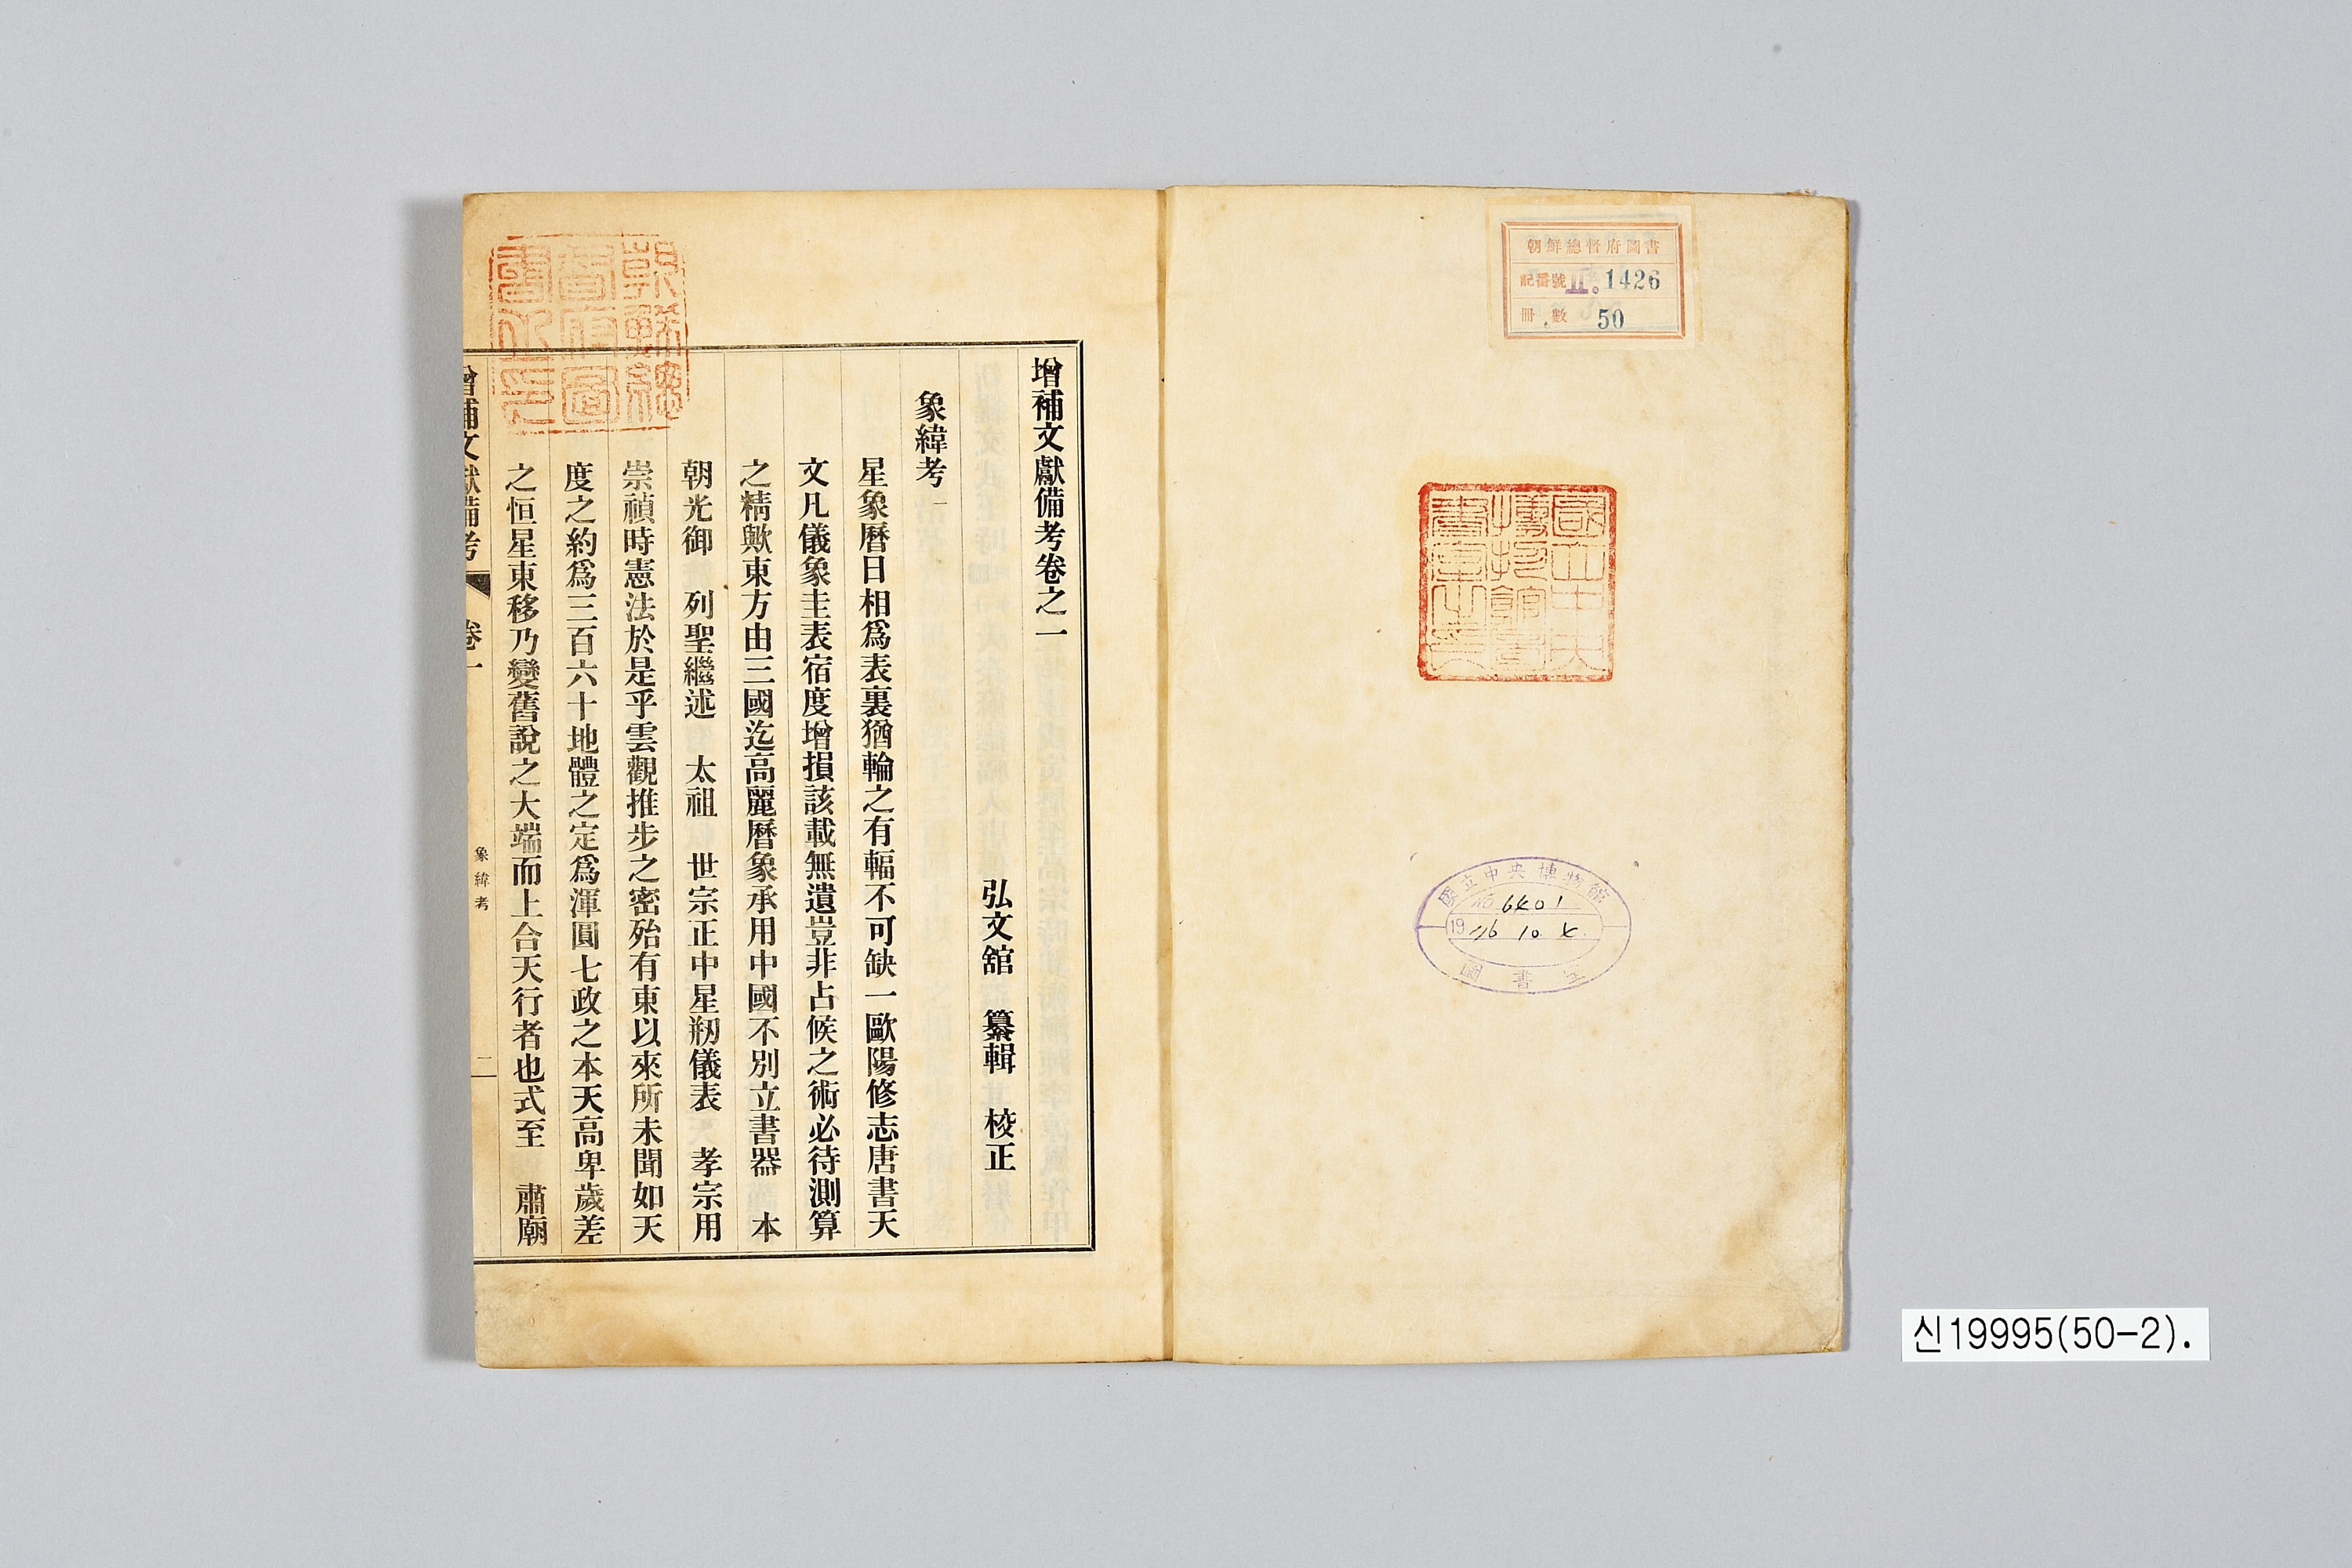 朝鮮總督府圖書
記番號 II. 1426
冊數 50
國立中央
博物館圖
書室之印
國立中央博物館
NO 6401
19 76 10 4.
圖書室
增補文獻備考卷之一
弘文舘 纂輯 校正
象緯考一
星象曆日相爲表裏猶輪之有輻不可缺一歐陽修志唐書天
文凡儀象圭表宿度增損該載無遺豈非占候之術必待測算
之精歟東方由三國迄高麗曆象承用中國不別立書器 本
朝光御 列聖繼述 太祖 世宗正中星刱儀表 孝宗用
崇禎時憲法於是乎雲觀推步之密殆有東以來所未聞如天
度之約爲三百六十地體之定爲渾圓七政之本天高卑歲差
之恒星東移乃變舊說之大端而上合天行者也式至 肅廟
朝鮮總
督府圖
書之印
增補文獻備考 卷一 象緯考 一
신19995(50-2).